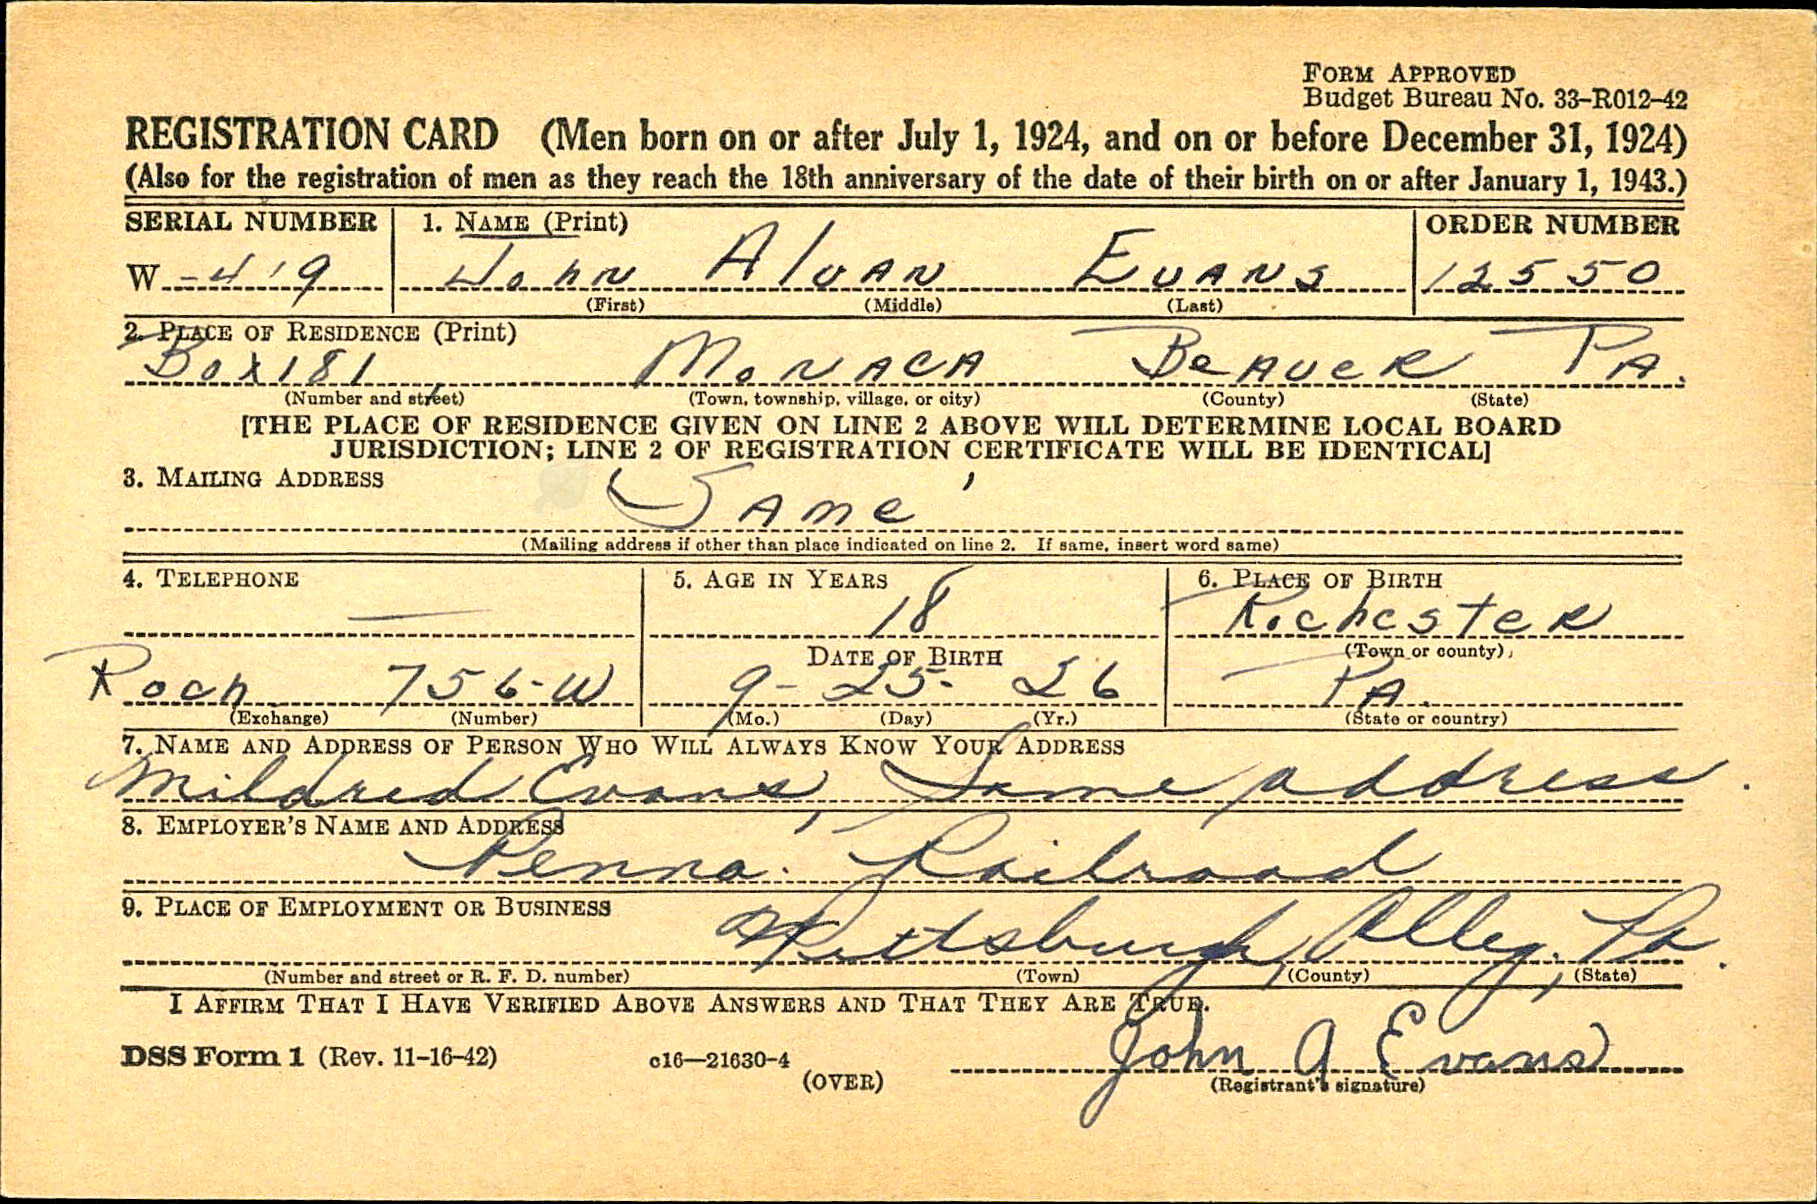 FORM APPROVED
Budget Bureau No. 33–R012–42
REGISTRATION CARD (Men born on or after July 1, 1924, and on or before December 31, 1924)
(Also for the registration of men as they reach the 18th anniversary of the date of their birth on or after January 1, 1943.)
SERIAL NUMBER 1. NAME (Print) ORDER NUMBER
W -419 John Alvan Evans 12550
(First) (Middle) (Last)
2. PLACE OF RESIDENCE (Print)
Box 181 Monaca Beaver Pa.
(Number and street) (Town, township, village, or city) (County) (State)
[THE PLACE OF RESIDENCE GIVEN ON LINE 2 ABOVE WILL DETERMINE LOCAL BOARD
JURISDICTION; LINE 2 OF REGISTRATION CERTIFICATE WILL BE IDENTICAL]
3. MAILING ADDRESS
Same
(Mailing address if other than place indicated on line 2. If same, insert word same)
4. TELEPHONE 5. AGE IN YEARS 6. PLACE OF BIRTH
18 Rochester
DATE OF BIRTH (Town or county)
Roch 756-W 9-25-26 Pa.
(Exchange) (Number) (Mo.) (Day) (Yr.) (State or country)
7. NAME AND ADDRESS OF PERSON WHO WILL ALWAYS KNOW YOUR ADDRESS
Mildred Evans, Same address.
8. EMPLOYER'S NAME AND ADDRESS
Penna. Railroad
9. PLACE OF EMPLOYMENT OR BUSINESS
Pittsburgh, Alleg., Pa.
(Number and street or R. F. D. number) (Town) (County) (State)
I AFFIRM THAT I HAVE VERIFIED ABOVE ANSWERS AND THAT THEY ARE TRUE.
DSS Form 1 (Rev. 11-16-42) c16—21630-4 John A Evans
(OVER) (Registrant's signature)